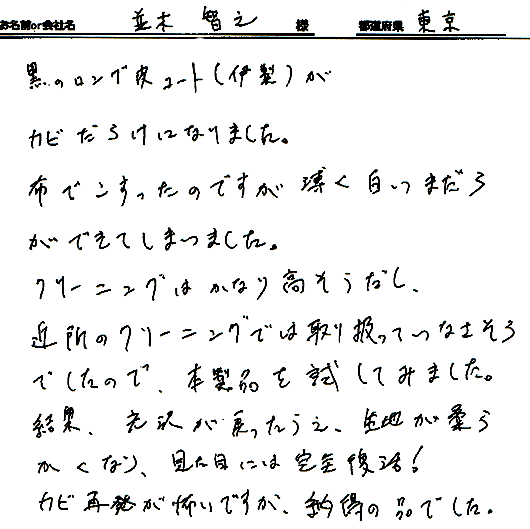 お名前or会社名 並木 智之 様 都道府県 東京
黒のロング皮コート(伊製)が
カビだらけになりました。
布でこすったのですが薄く白いまだら
ができてしまいました。
クリーニングはかなり高そうだし、
近所のクリーニングでは取り扱っていなさそう
でしたので、本製品を試してみました。
結果、光沢が戻ったうえ、生地が柔ら
かくなり、見た目には完全復活!
カビ再発が怖いですが、納得の品でした。